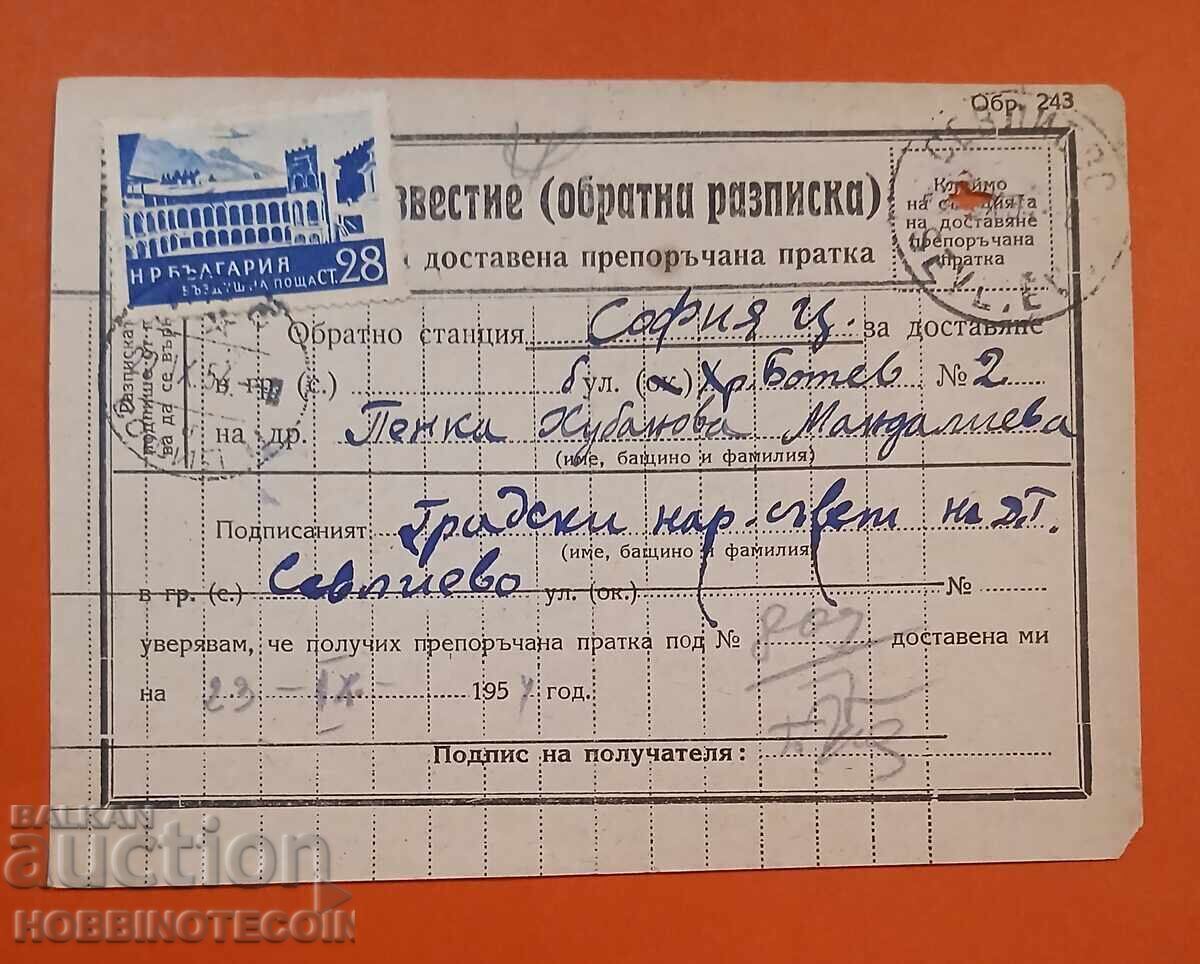 Обр. 243
звестие (обратна разписка)
доставена препоръчана пратка
Н Р БЪЛГАРИЯ
ВЪЗДУШНА ПОЩА СТ. 28
на
на доставяне
препоръчана
пратка
СЕВЛИЕВО
Разписката
подпише от
ва да се вър
Обратно станция София ц. за доставяне
в гр. (с.) бул. (ок) Хр. Ботев № 2
на др. Пенка Хубанова Мандалиева
(име, бащино и фамилия)
Подписаният Градски нар. съвет на д.т.
(име, бащино и фамилия)
в гр. (с.) Севлиево ул. (ок.) №
уверявам, че получих препоръчана пратка под № доставена ми
на 23 - IX - 195 год.
Подпис на получателя:
BALKAN
auction
HOBBINOTECOIN